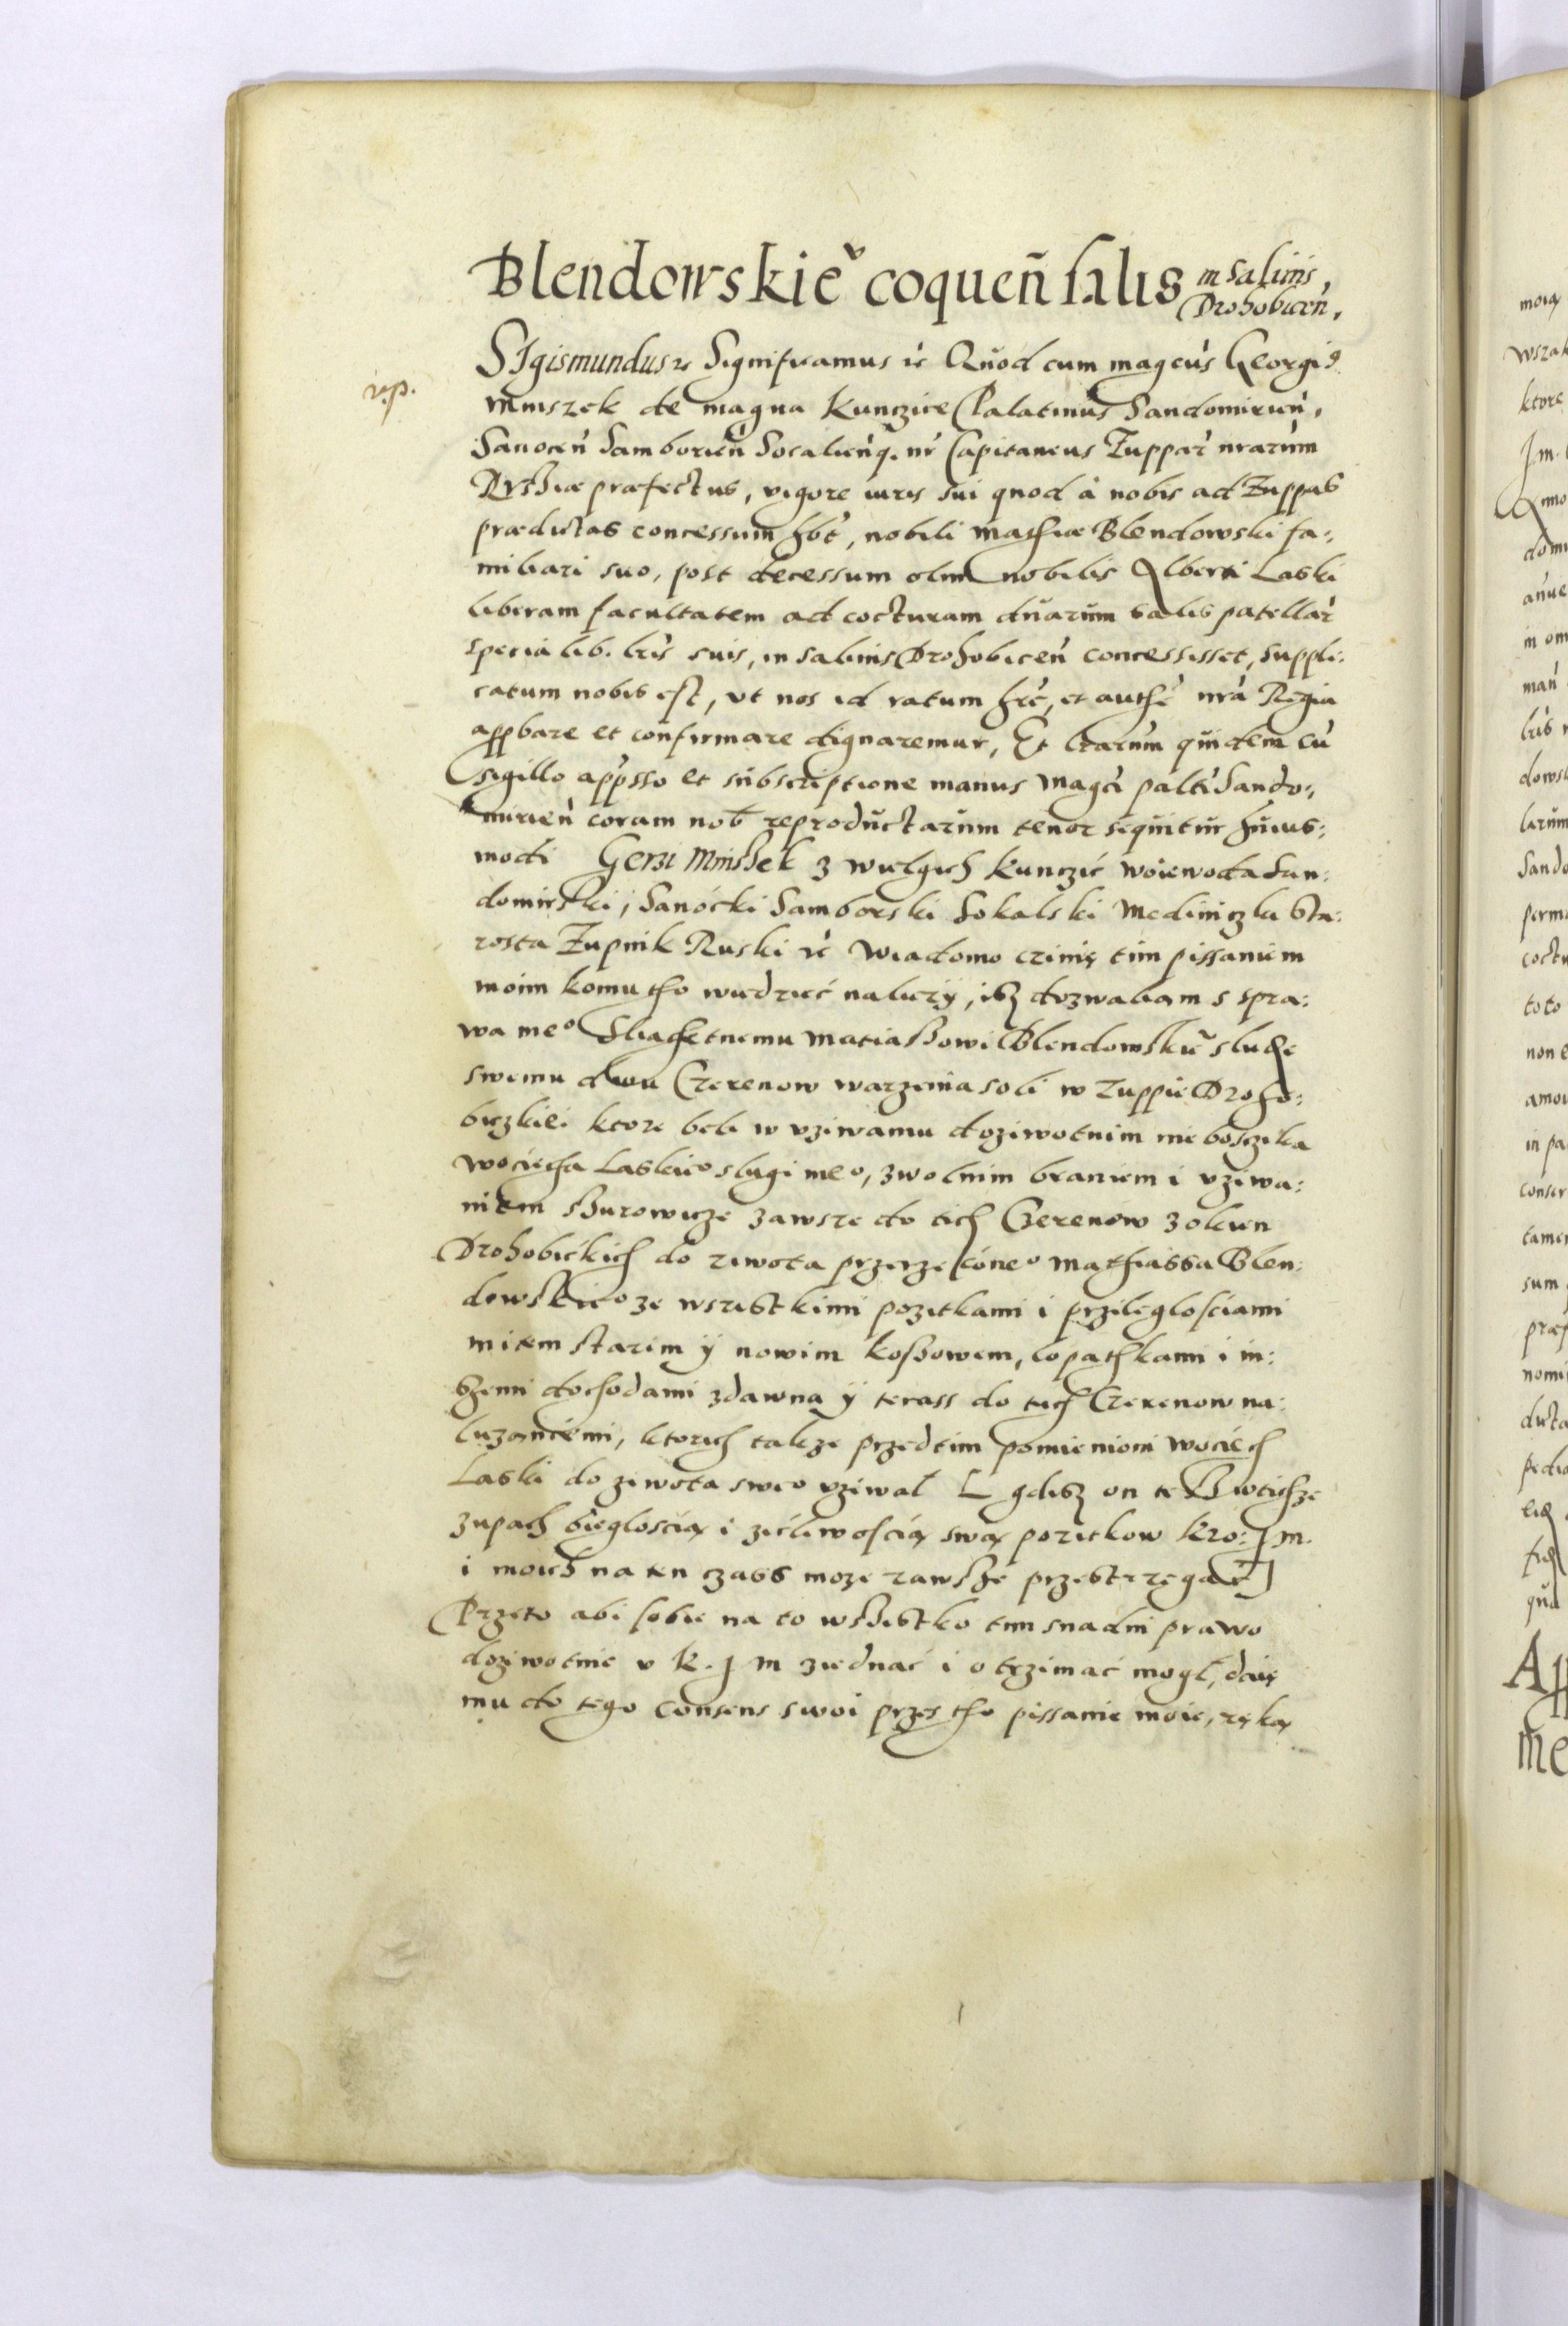 Blendowskiẽ coqueñ salis in Salinis
Drohobiceñ.
v.p.
SIgismundus &c Significamus &c Quod cum mag̃cus Georgius
Mniszek de magna Kunczice Palatinus Sandomirien̄,
Sanocen̄ Samborien̄ Socalien̄q. nr̄ Capitaneus Zuppar̄ nrarum
Russiæ præfectus, vigore iuris sui quod à nobis ad Zuppas
prædictas concessum hb̄t, nobili Mathiæ Blendowski fa:
miliari suo, post decessum olim nobilis Alberti Laski
liberam facultatem ad cocturam duarum salis patellar̄
specialib. lr̄is suis, in salinis Drohobicen̄ concessisset, Suppli:
catum nobis est, vt nos id ratum hr̄e, et authẽ nr̄a Regia
appbare et confirmare dignaremur, Et lrarum quidem cũ
sigillo app̄sso et subscriptione manus Mag̃ci palt̃i Sando:
mirien̄ coram nob̄ reproductarum tenor sequitur huius:
modi Gerzi Mnishek z wielgich Kunczić woiewoda San:
domirski, Sanocki Samborski Sokalski Mediniczki Sta:
rosta Zupnik Ruski &c Wiadomo czinię tim pissaniem
moim komu tho wiedzieć należy, isz dozwaliam s spra:
wa meº Sliachetnemu Matiaszowi Blendowskiẽ sludze
swemu dwu Czerenow warzenia soli w zuppie Droho:
biczkiei ktore beli w vziwaniu doziwotnim nieboszczika
Wociecha Laskieº slugi meº, z wolnim braniem i vziwa:
niem surowicze zawsze do tich Czerenow z okien
Drohobickich do ziwota przerzeczoneº Mathiassa Blen:
dowskieº ze wszistkimi pozitkami i przileglosciami
mitem starim y nowim kossowem, lopathkami i in:
szemi dochodami zdawna y terass do tich Czerenow na:
luzanciemi, ktorich takze przedtim pomienioni Wociech
Laski do ziwota sweº vziwal [gdisz on te w tichze
zupach bieglosciaᶍ i zićliwosciaᶍ swaᶍ pozitkow Kro: J m.
i moich na ten czass moze zawsze przestrzegać]
Przeto abi sobie na to wszistko tim snadni prawo
doziwotnie v K. J m ziednać i otrzimać mogl, daię
mu do tego Consens swoi przes tho pissanie moie, ręką